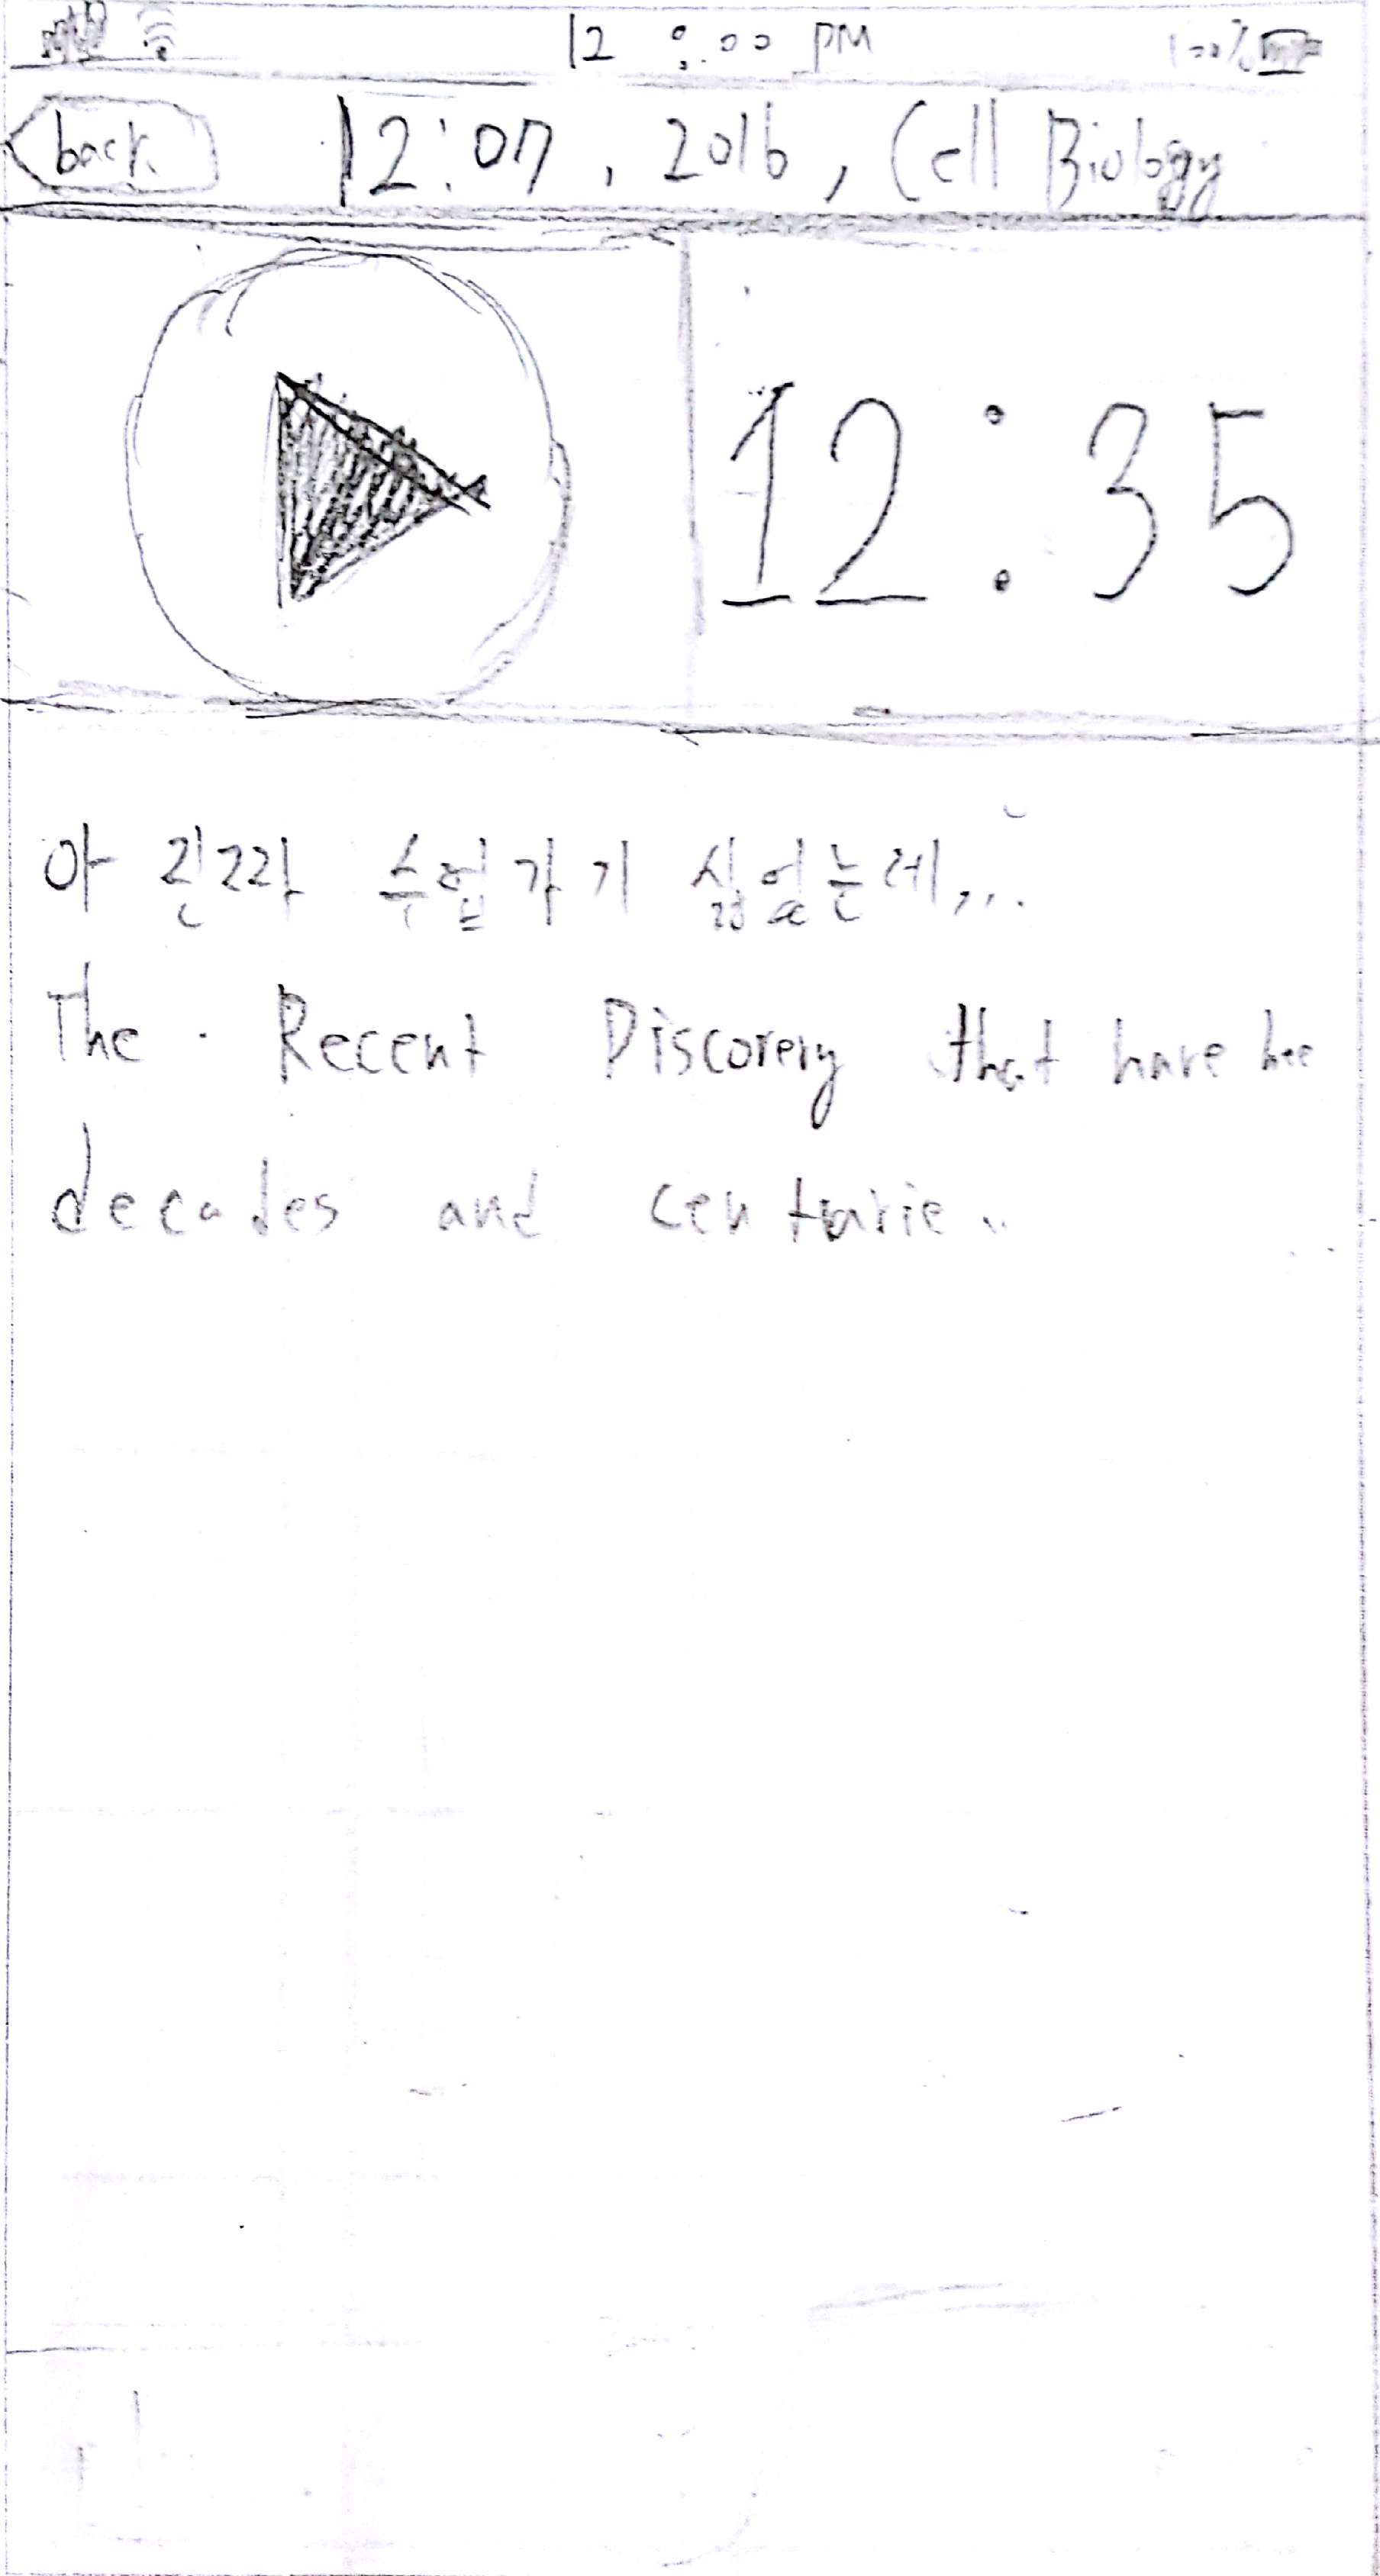 12:00 PM 100%
back 12:07, 2016, Cell Biology
12:35
아 진짜 수업가기 싫었는데...
The Recent Discovery that have bee
decades and centurie..